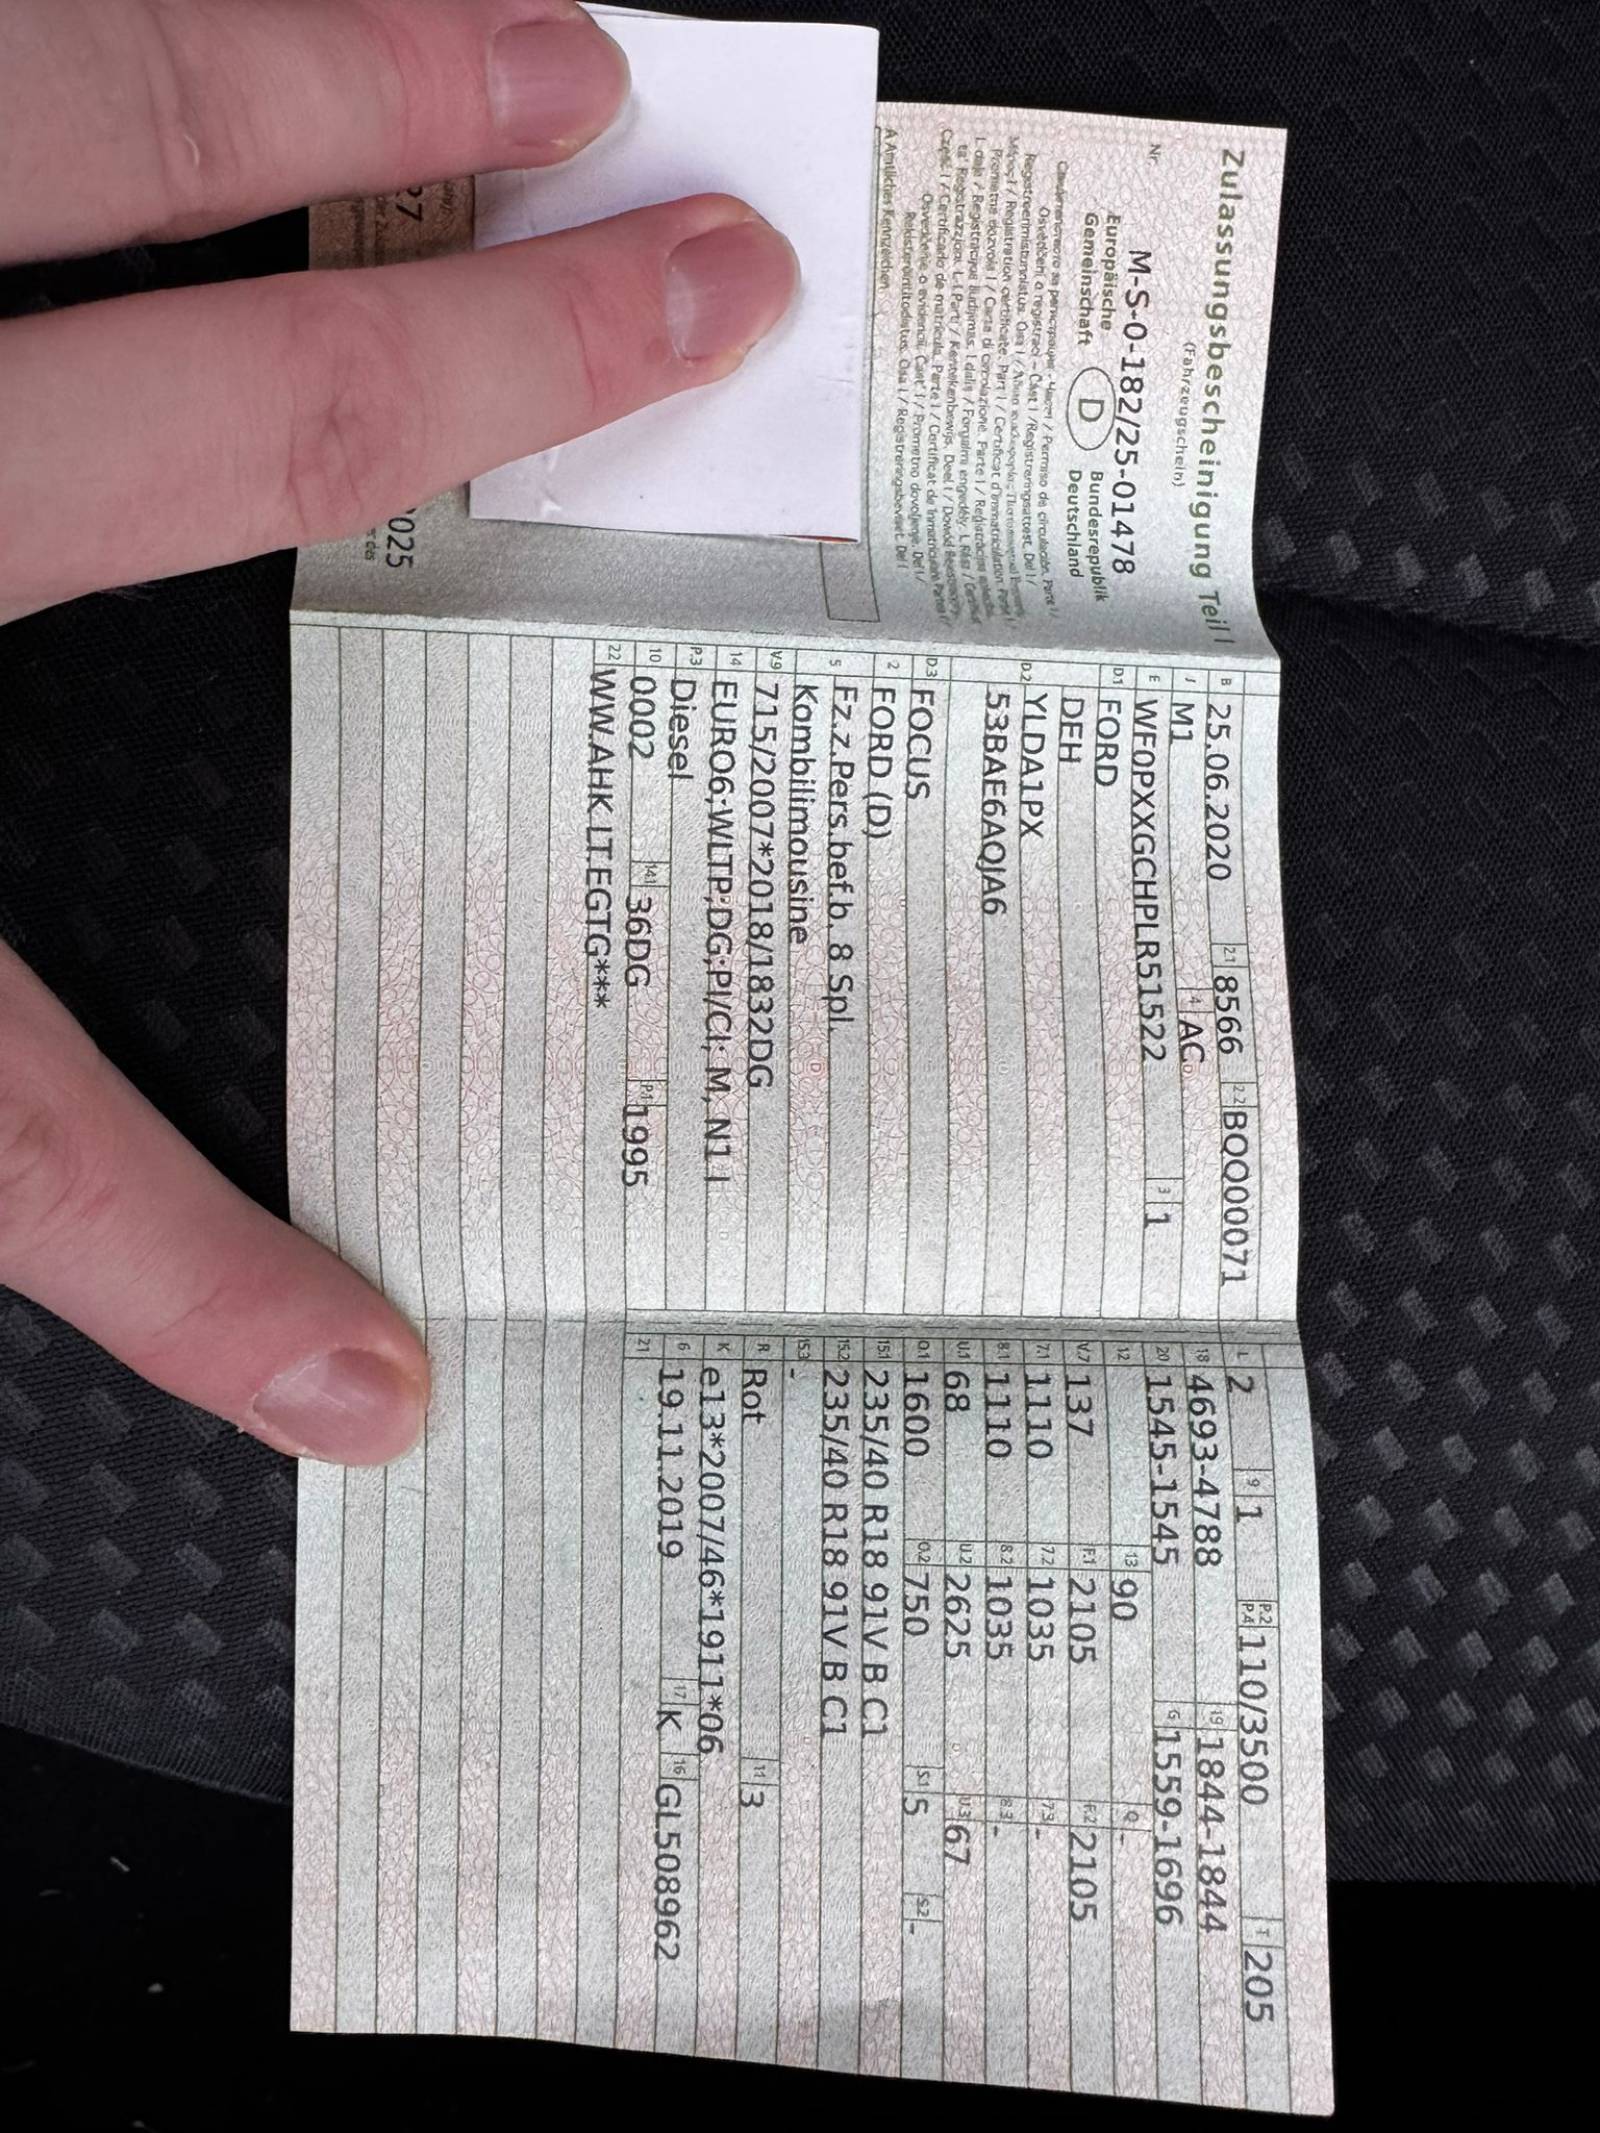 Zulassungsbescheinigung Teil I
(Fahrzeugschein)
Nr. M-S-0-182/25-01478
Europäische Gemeinschaft
D
Bundesrepublik Deutschland
A Amtliches Kennzeichen
025
B 25.06.2020 2.1 8566 2.2 BQQ00071
J M1 4 AC
E WF0PXXGCHPLR51522 3 1
D.1 FORD
DEH
D.2 YLDA1PX
53BAE6AQJA6
D.3 FOCUS
2 FORD (D)
5 Fz.z.Pers.bef.b. 8 Spl.
Kombilimousine
V.9 715/2007*2018/1832DG
14 EURO6;WLTP;DG;PI/CI; M, N1 I
P.3 Diesel
10 0002 14.1 36DG P.1 1995
22 WW.AHK LT.EGTG***
L 2 9 1 P.2 P.4 110/3500 T 205
18 4693-4788 19 1844-1844
20 1545-1545 G 1559-1696
12 13 90 Q -
V.7 137 F.1 2105 F.2 2105
7.1 1110 7.2 1035 7.3 -
8.1 1110 8.2 1035 8.3 -
U.1 68 U.2 2625 U.3 67
O.1 1600 O.2 750 S.1 5 S.2 -
15.1 235/40 R18 91V B C1
15.2 235/40 R18 91V B C1
15.3 -
R Rot 11 3
K e13*2007/46*1911*06
6 19.11.2019 17 K 16 GL508962
21